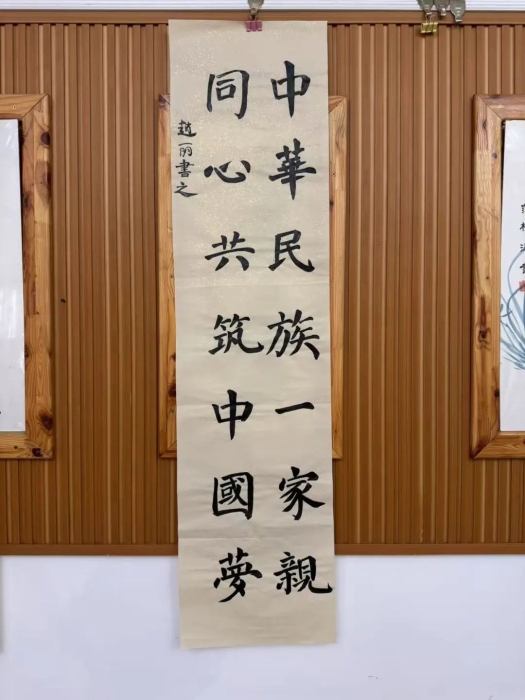 中華民族一家親
同心共筑中國夢
趙丽書之